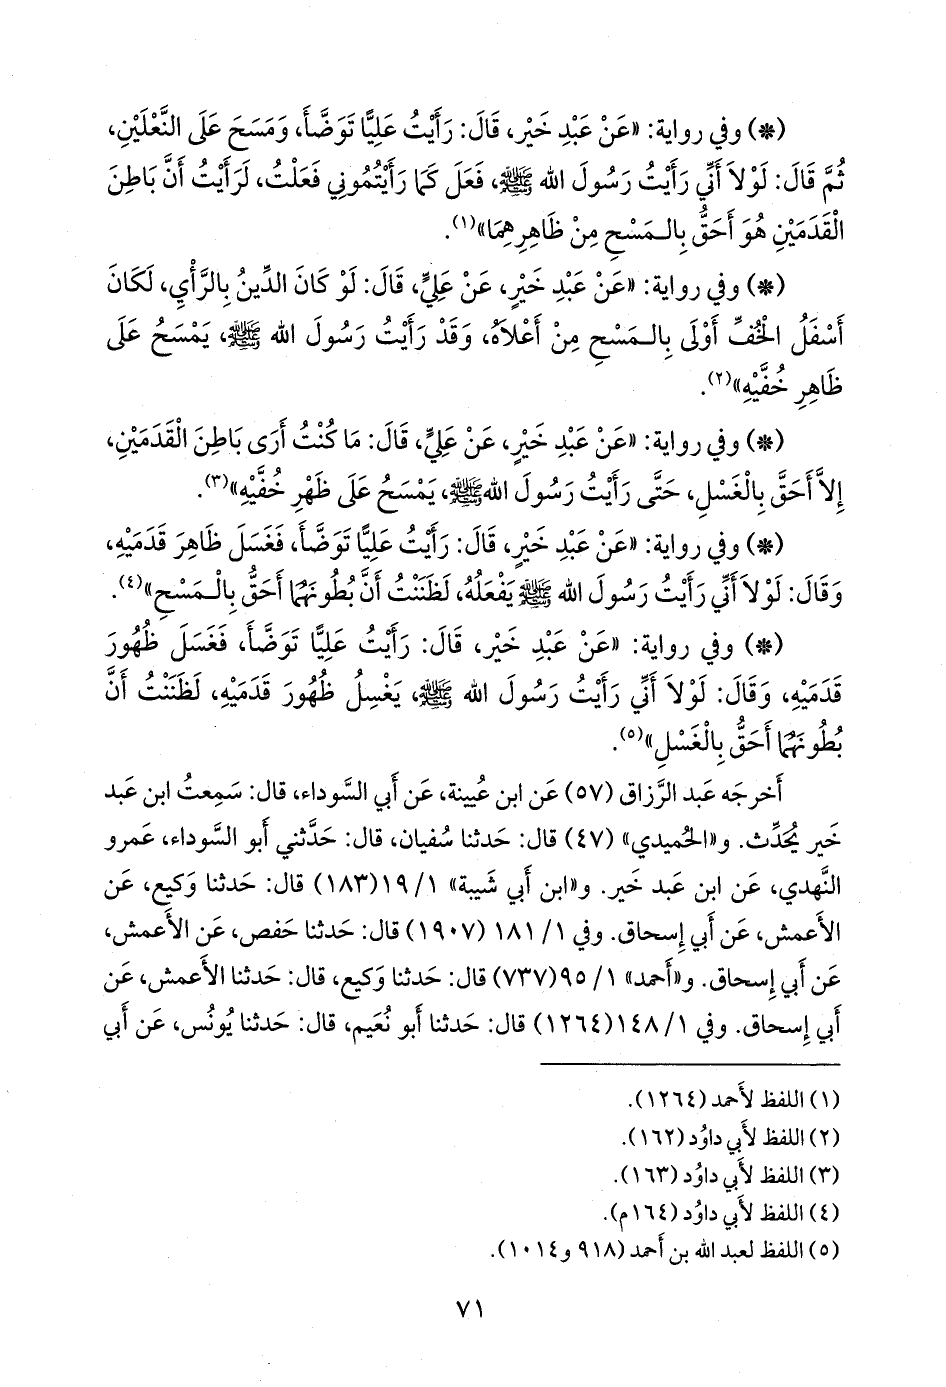 (*) وفي رواية: «عَنْ عَبْدِ خَيْرٍ، قَالَ: رَأَيْتُ عَلِيًّا تَوَضَّأَ، وَمَسَحَ عَلَى النَّعْلَيْنِ،
ثُمَّ قَالَ: لَوْلاَ أَنِّي رَأَيْتُ رَسُولَ الله ﷺ، فَعَلَ كَمَا رَأَيْتُمُونِي فَعَلْتُ، لَرَأَيْتُ أَنَّ بَاطِنَ
الْقَدَمَيْنِ هُوَ أَحَقُّ بِالْمَسْحِ مِنْ ظَاهِرِهِمَا»(١).
(*) وفي رواية: «عَنْ عَبْدِ خَيْرٍ، عَنْ عَلِيٍّ، قَالَ: لَوْ كَانَ الدِّينُ بِالرَّأْيِ، لَكَانَ
أَسْفَلُ الْخُفِّ أَوْلَى بِالْمَسْحِ مِنْ أَعْلاَهُ، وَقَدْ رَأَيْتُ رَسُولَ الله ﷺ، يَمْسَحُ عَلَى
ظَاهِرِ خُفَّيْهِ»(٢).
(*) وفي رواية: «عَنْ عَبْدِ خَيْرٍ، عَنْ عَلِيٍّ، قَالَ: مَا كُنْتُ أَرَى بَاطِنَ الْقَدَمَيْنِ،
إِلاَّ أَحَقَّ بِالْغَسْلِ، حَتَّى رَأَيْتُ رَسُولَ الله ﷺ، يَمْسَحُ عَلَى ظَهْرِ خُفَّيْهِ»(٣).
(*) وفي رواية: «عَنْ عَبْدِ خَيْرٍ، قَالَ: رَأَيْتُ عَلِيًّا تَوَضَّأَ، فَغَسَلَ ظَاهِرَ قَدَمَيْهِ،
وَقَالَ: لَوْلاَ أَنِّي رَأَيْتُ رَسُولَ الله ﷺ يَفْعَلُهُ، لَظَنَنْتُ أَنَّ بُطُونَهُمَا أَحَقُّ بِالْمَسْحِ»(٤).
(*) وفي رواية: «عَنْ عَبْدِ خَيْرٍ، قَالَ: رَأَيْتُ عَلِيًّا تَوَضَّأَ، فَغَسَلَ ظُهُورَ
قَدَمَيْهِ، وَقَالَ: لَوْلاَ أَنِّي رَأَيْتُ رَسُولَ الله ﷺ، يَغْسِلُ ظُهُورَ قَدَمَيْهِ، لَظَنَنْتُ أَنَّ
بُطُونَهُمَا أَحَقُّ بِالْغَسْلِ»(٥).
أَخرجَه عَبد الرَّزاق (٥٧) عَن ابن عُيينة، عَن أَبي السَّوداء، قال: سَمِعتُ ابن عَبد
خَير يُحَدِّث. و«الحُميدي» (٤٧) قال: حَدثنا سُفيان، قال: حَدَّثني أَبو السَّوداء، عَمرو
النَّهدي، عَن ابن عَبد خَير. و«ابن أَبي شَيبة» ١/ ١٩(١٨٣) قال: حَدثنا وَكيع، عَن
الأَعمش، عَن أَبي إِسحاق. وفي ١/ ١٨١ (١٩٠٧) قال: حَدثنا حَفص، عَن الأَعمش،
عَن أَبي إِسحاق. و«أَحمد» ١/ ٩٥(٧٣٧) قال: حَدثنا وَكيع، قال: حَدثنا الأَعمش، عَن
أَبي إِسحاق. وفي ١/ ١٤٨(١٢٦٤) قال: حَدثنا أَبو نُعَيم، قال: حَدثنا يُونُس، عَن أَبي
(١) اللفظ لأَحمد (١٢٦٤).
(٢) اللفظ لأَبي داوُد (١٦٢).
(٣) اللفظ لأَبي داوُد (١٦٣).
(٤) اللفظ لأَبي داوُد (١٦٤م).
(٥) اللفظ لعبد الله بن أَحمد (٩١٨ و١٠١٤).
٧١